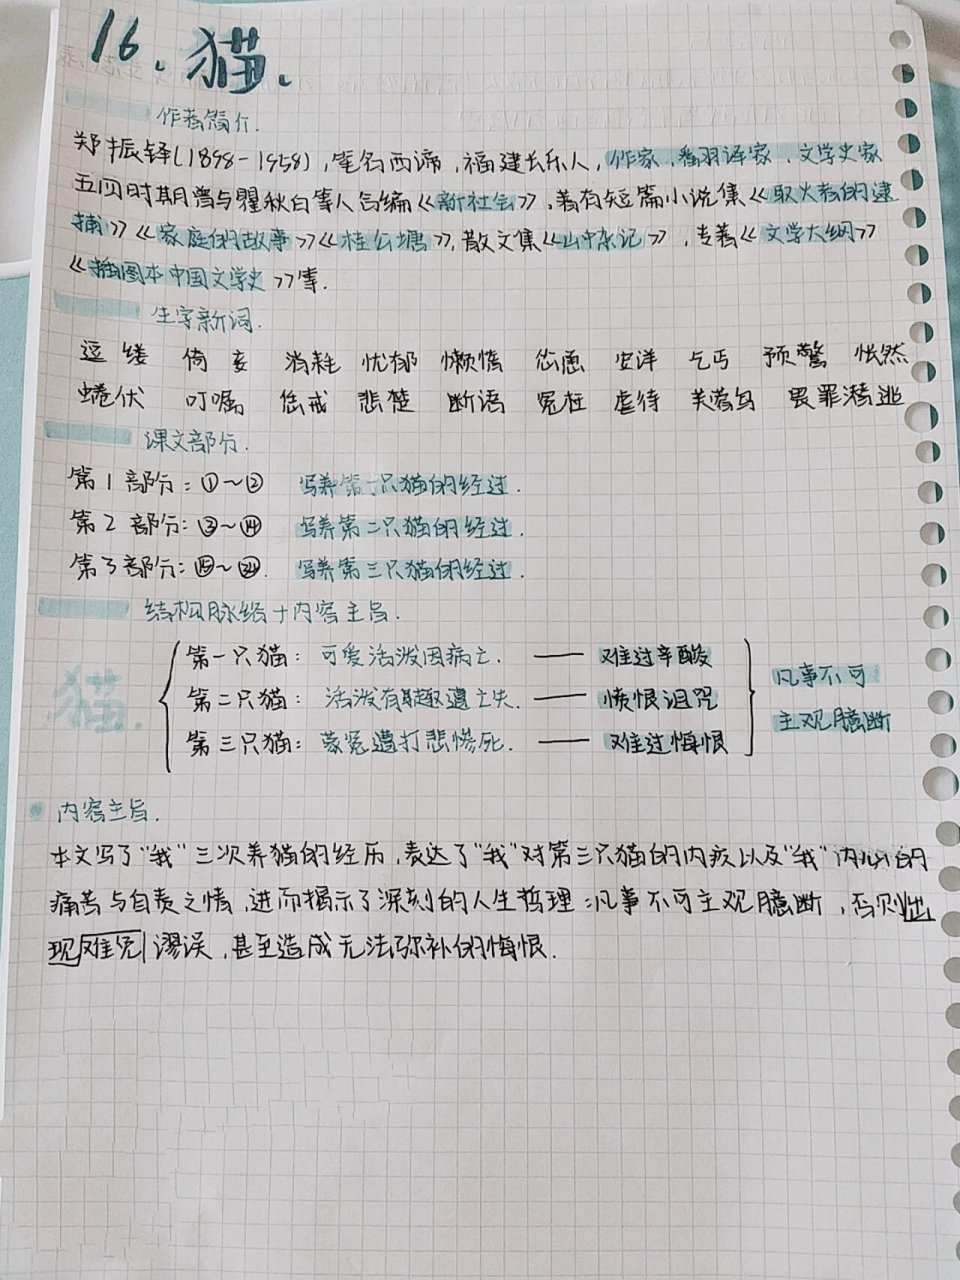 16.猫.
作者简介.
郑振铎(1898-1958),笔名西谛,福建长乐人,作家、翻译家、文学史家
五四时期曾与瞿秋白等人合编《新社会》,著有短篇小说集《取火者的逮
捕》《家庭的故事》《桂公塘》,散文集《山中杂记》,专著《文学大纲》
《插图本中国文学史》等.
生字新词.
逗 缕 倚 妄 消耗 忧郁 懒惰 怂恿 安详 乞丐 预警 怅然
蜷伏 叮嘱 惩戒 悲楚 断语 冤枉 虐待 芙蓉鸟 畏罪潜逃
课文部分.
第1部分:①~② 写养第一只猫的经过.
第2部分:③~⑭ 写养第二只猫的经过.
第3部分:⑮~ 写养第三只猫的经过.
结构脉络+内容主旨.
猫.
第一只猫: 可爱活泼因病亡. —— 难过辛酸
第二只猫: 活泼有趣遭亡失. —— 愤恨诅咒
第三只猫: 蒙冤遭打悲惨死. —— 难过悔恨
凡事不可
主观臆断
内容主旨.
本文写了“我”三次养猫的经历,表达了“我”对第三只猫的内疚以及“我”内心的
痛苦与自责之情,进而揭示了深刻的人生哲理:凡事不可主观臆断,否则出
现难免谬误,甚至造成无法弥补的悔恨.